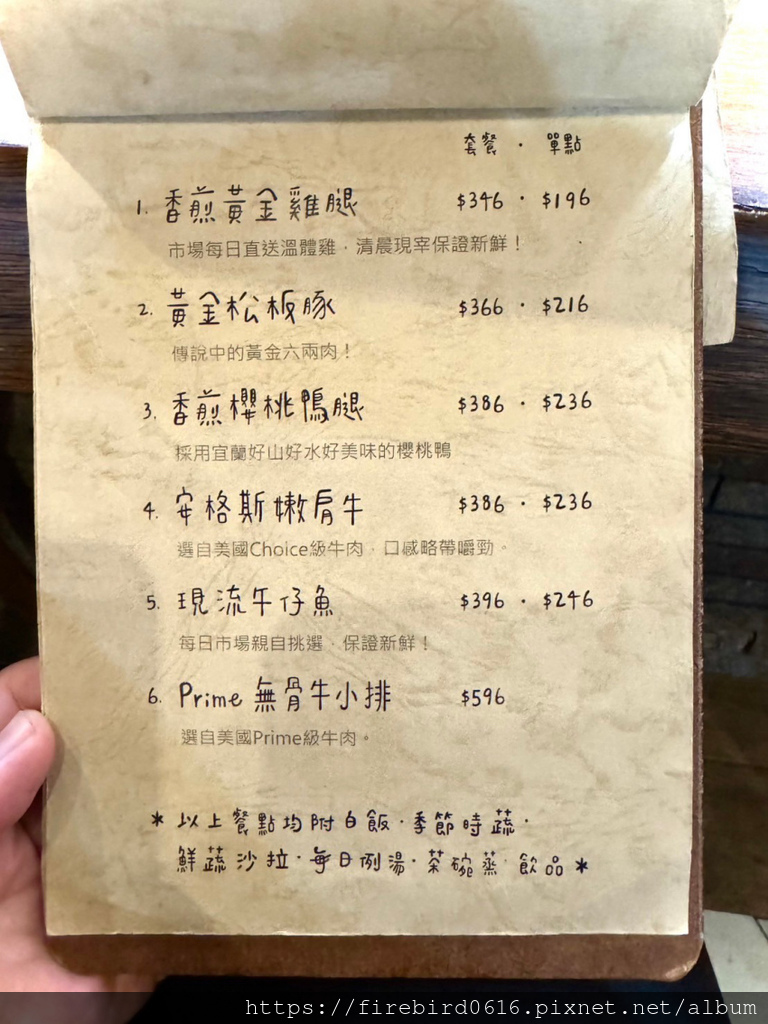 套餐 · 單點
1. 香煎黃金雞腿 $346 · $196
市場每日直送溫體雞，清晨現宰保證新鮮！
2. 黃金松板豚 $366 · $216
傳說中的黃金六兩肉！
3. 香煎櫻桃鴨腿 $386 · $236
採用宜蘭好山好水好美味的櫻桃鴨
4. 安格斯嫩肩牛 $386 · $236
選自美國Choice級牛肉，口感略帶嚼勁。
5. 現流午仔魚 $396 · $246
每日市場親自挑選，保證新鮮！
6. Prime 無骨牛小排 $596
選自美國Prime級牛肉。
* 以上餐點均附白飯·季節時蔬·
鮮蔬沙拉·每日例湯·茶碗蒸·飲品 *
https://firebird0616.pixnet.net/album